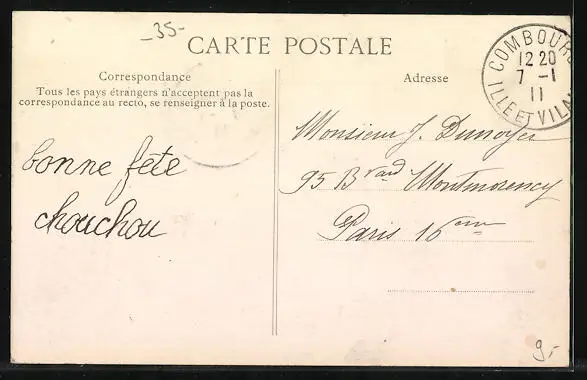 -35-
CARTE POSTALE
Correspondance
Tous les pays étrangers n'acceptent pas la
correspondance au recto, se renseigner à la poste.
bonne fete
chouchou
Adresse
Monsieur J. Dunoyer
95 Bvard Montmorency
Paris 16eme
COMBOURG
12 20
7 -1
11
ILLE ET VILAI
9,-